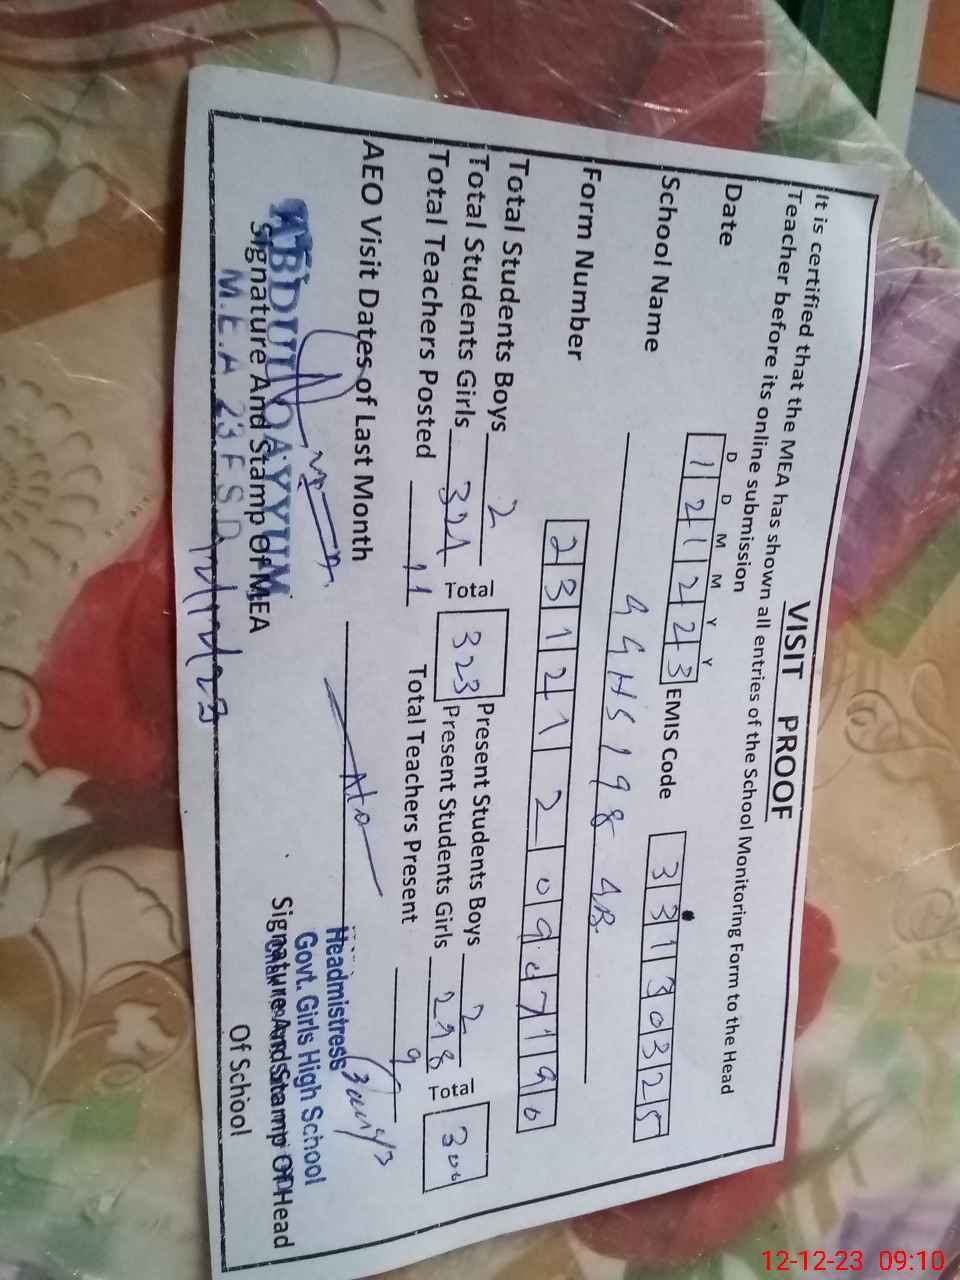 VISIT PROOF
It is certified that the MEA has shown all entries of the School Monitoring Form to the Head
Teacher before its online submission
D D M M Y Y
Date 12 12 23 EMIS Code 33130325
School Name GGHS 198 GB
Form Number
Total Students Boys 2 Present Students Boys 2
Total Students Girls 321 Total 323 Present Students Girls 298 Total 300
Total Teachers Posted 11 Total Teachers Present 9
AEO Visit Dates of Last Month
ABDUL QAYYUM
Signature And Stamp Of MEA
M.E.A 23 FSD
12/12/23
Headmistress
Govt. Girls High School
Signature And Stamp Of Head
Of School
12-12-23 09:10